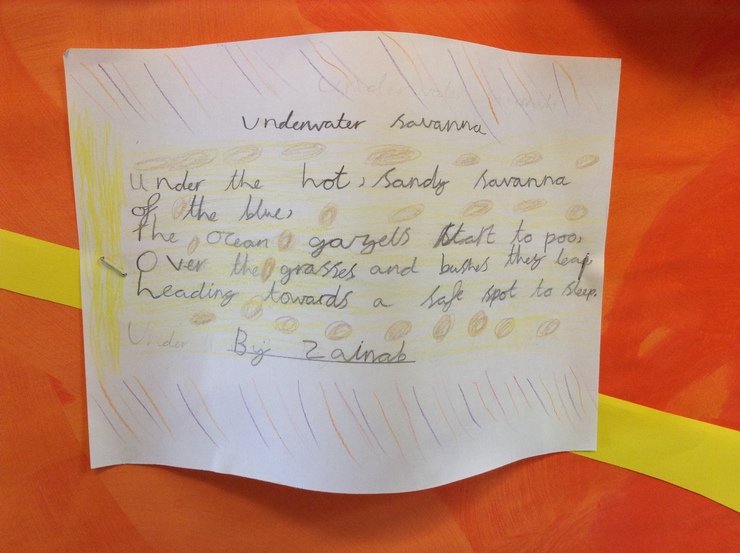 Underwater savanna
Under the hot, sandy savanna
of the blue,
The ocean gazzels start to poo,
Over the grasses and bushs they leap,
heading towards a safe spot to sleep.
Under
By Zainab